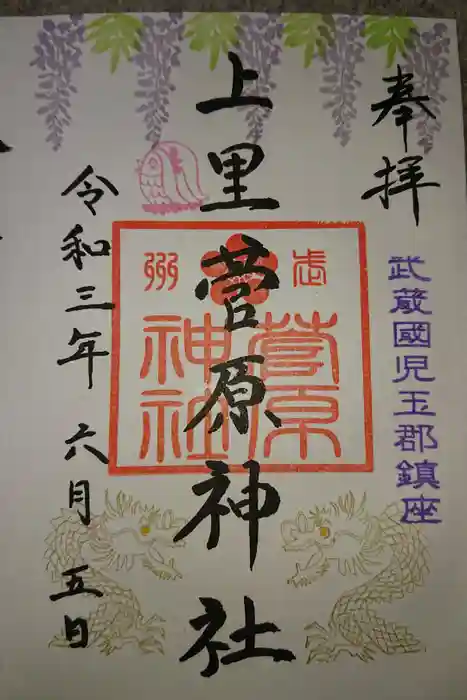 奉拝
武蔵國児玉郡鎮座
上里菅原神社
武州
菅原
神社
令和三年六月五日